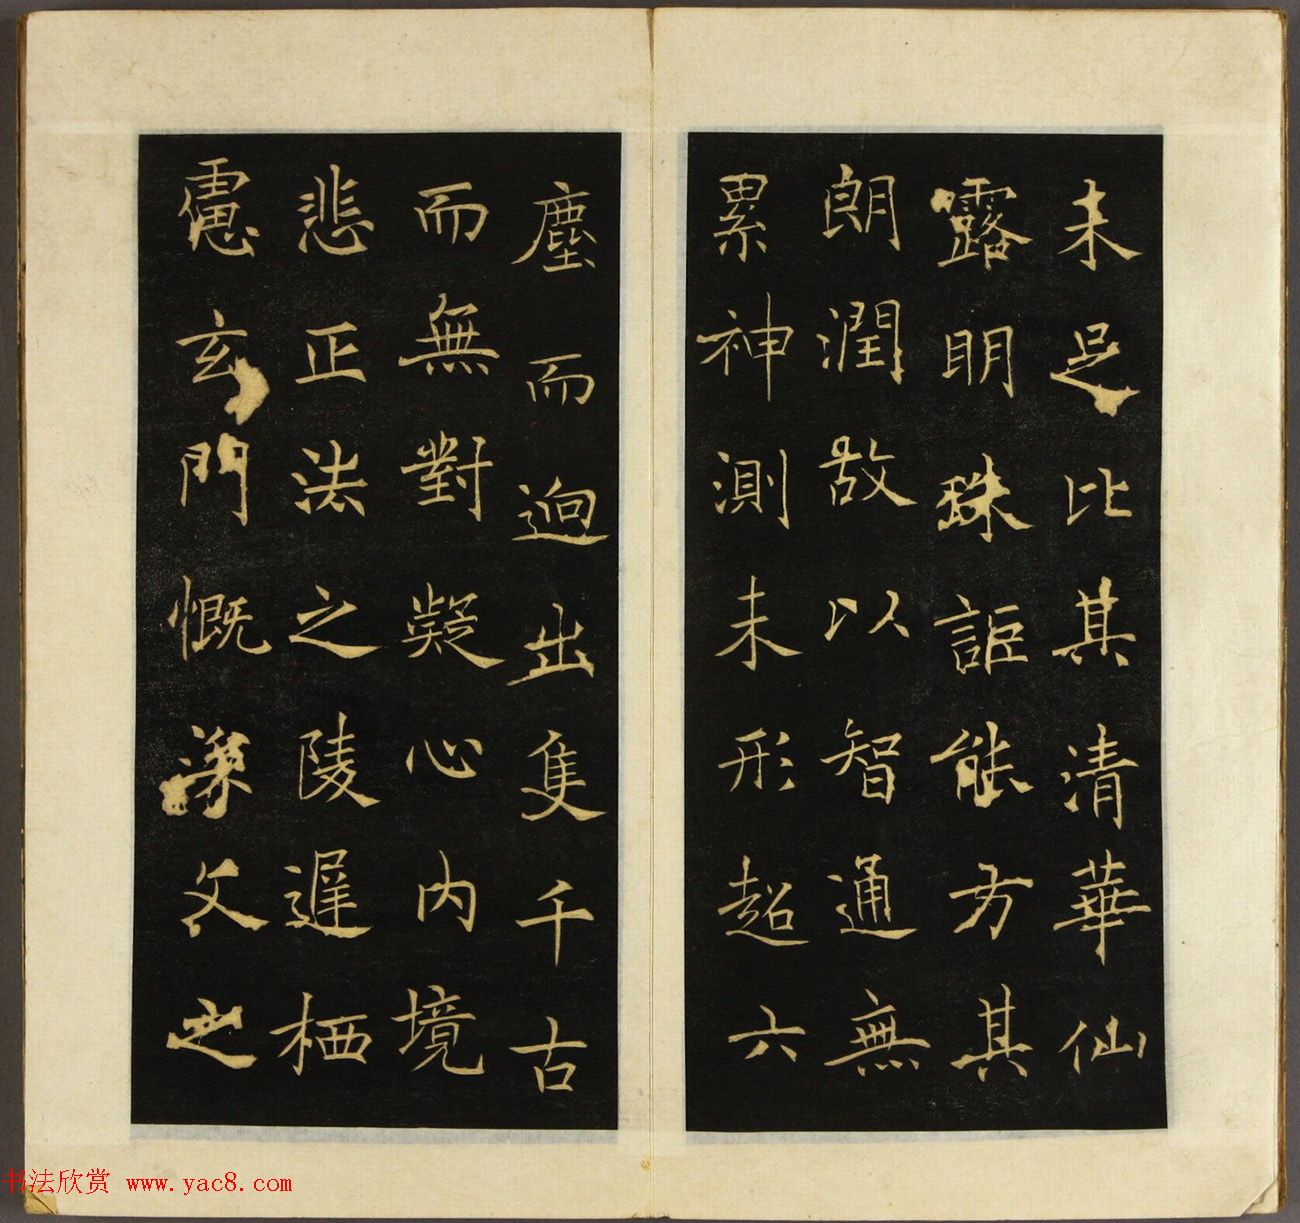 未足比其清華仙
露明珠詎能方其
朗潤故以智通無
累神測未形超六
塵而逈出隻千古
而無對凝心內境
悲正法之陵遲栖
慮玄門慨深文之
书法欣赏 www.yac8.com